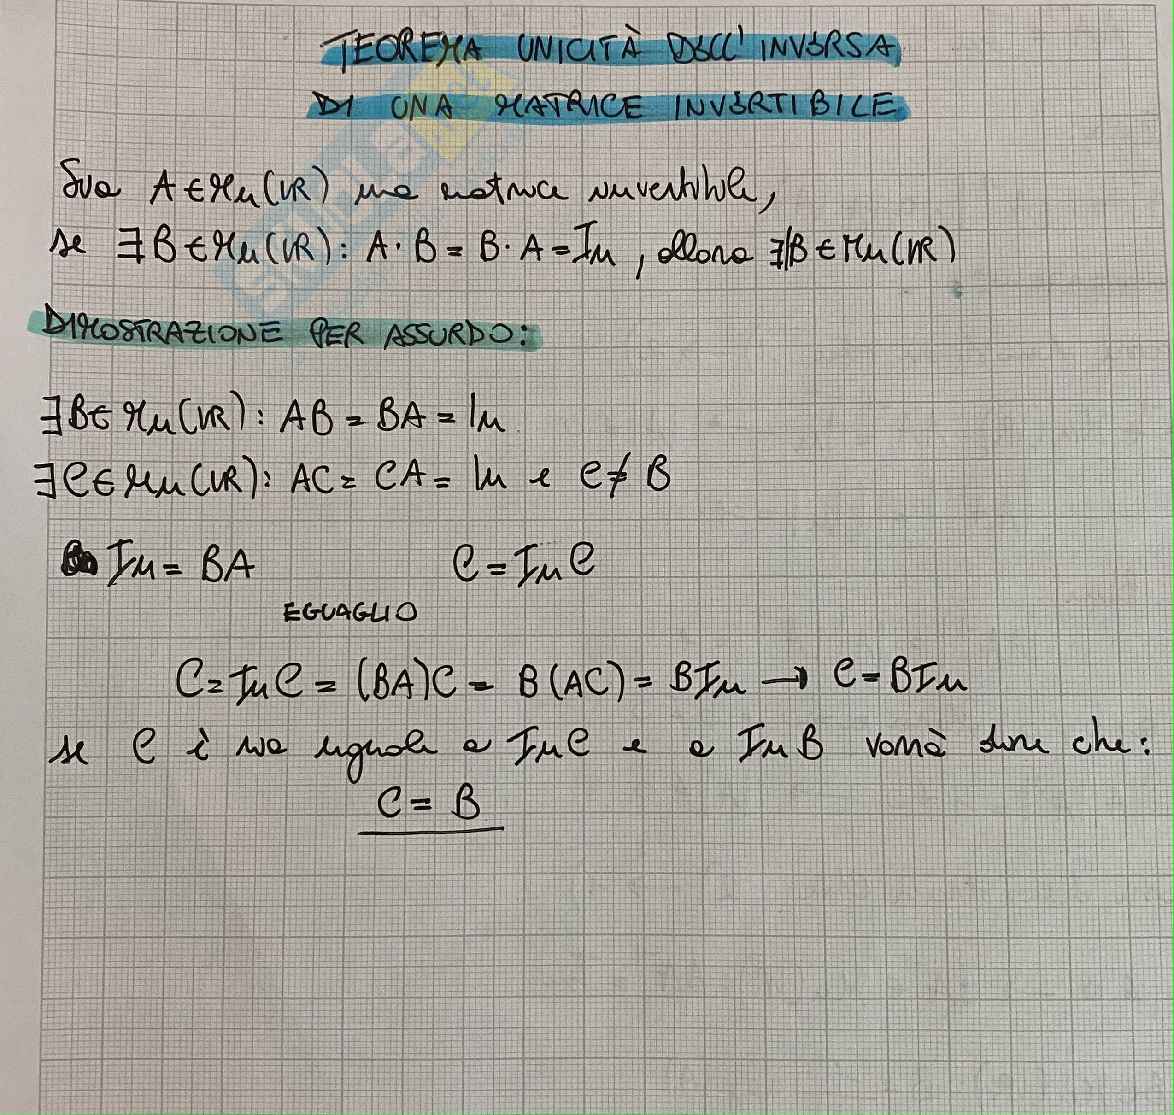 TEOREMA UNICITÀ DELL'INVERSA
DI UNA MATRICE INVERTIBILE
Sia A ∈ Mn(IR) una matrice invertibile,
se ∃ B ∈ Mn(IR): A · B = B · A = In, allora ∃| B ∈ Mn(IR)
DIMOSTRAZIONE PER ASSURDO:
∃ B ∈ Mn(IR): AB = BA = In
∃ C ∈ Mn(IR): AC = CA = In e C ≠ B
In = BA C = In C
EGUAGLIO
C = In C = (BA)C = B(AC) = BIn → C = BIn
se C è sia uguale a In C e a In B vorrà dire che:
C = B